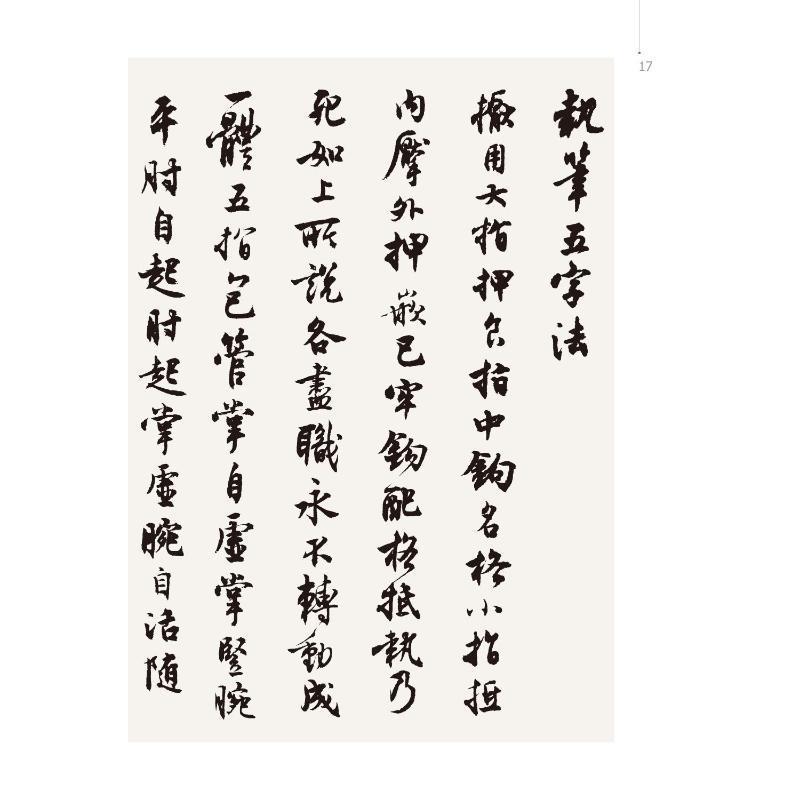 17
執筆五字法
擫用大指押食指中鉤名格小指抵
内擪外押嵌已牢鉤配格抵執乃
死如上所說各盡職永不轉動成
一體五指包管掌自虛掌竪腕
平肘自起肘起掌虛腕自活随